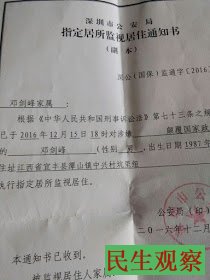 深圳市公安局
指定居所监视居住通知书
(副本)
深公(国保)监通字〔2016
邓剑峰家属:
根据《中华人民共和国刑事诉讼法》第七十三条之规
已于2016年12月15日18时对涉嫌 颠覆国家政
的 邓剑峰 (性别 男,出生日期1987年
住址江西省宜丰县潭山镇中共村坑里组
执行指定居所监视居住。
公安局(印)
二〇一六年十二月
本通知书已收到。
被监视居住人家属:
民生观察